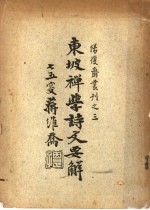 陽復齋叢刊之三
東坡禪學詩文要解
七五叟蔣維喬